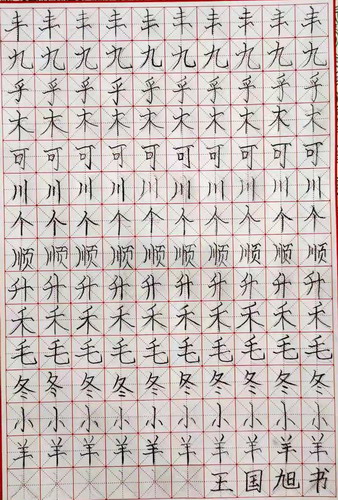 丰丰丰丰丰丰丰丰丰丰
九九九九九九九九九九
乎乎乎乎乎乎乎乎乎乎
木木木木木木木木木木
可可可可可可可可可可
川川川川川川川川川川
个个个个个个个个个个
顺顺顺顺顺顺顺顺顺顺
升升升升升升升升升升
禾禾禾禾禾禾禾禾禾禾
毛毛毛毛毛毛毛毛毛毛
冬冬冬冬冬冬冬冬冬冬
小小小小小小小小小小
羊羊羊羊羊羊羊羊羊羊
王国旭书